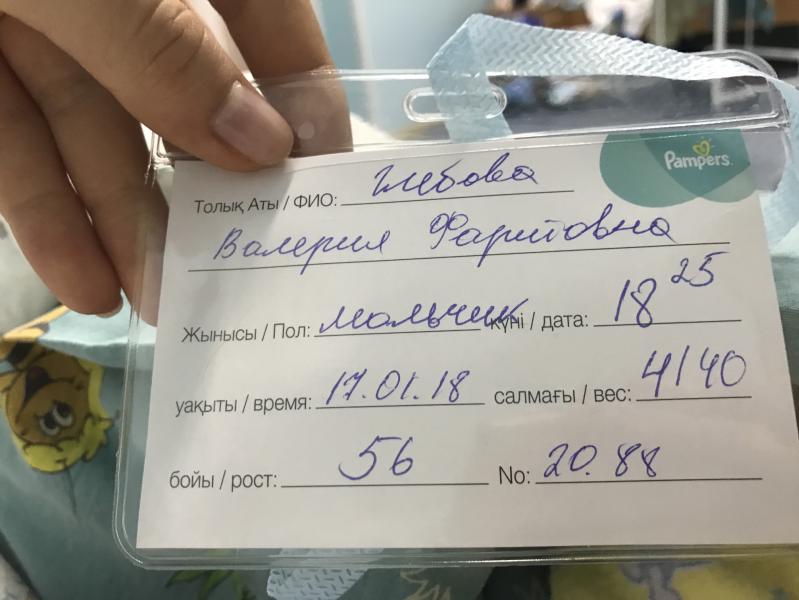 Pampers
Толық Аты / ФИО: Глебова
Валерия Фаритовна
Жынысы / Пол: мальчик күні / дата: 18 25
уақыты / время: 17.01.18 салмағы / вес: 4140
бойы / рост: 56 No: 20.88